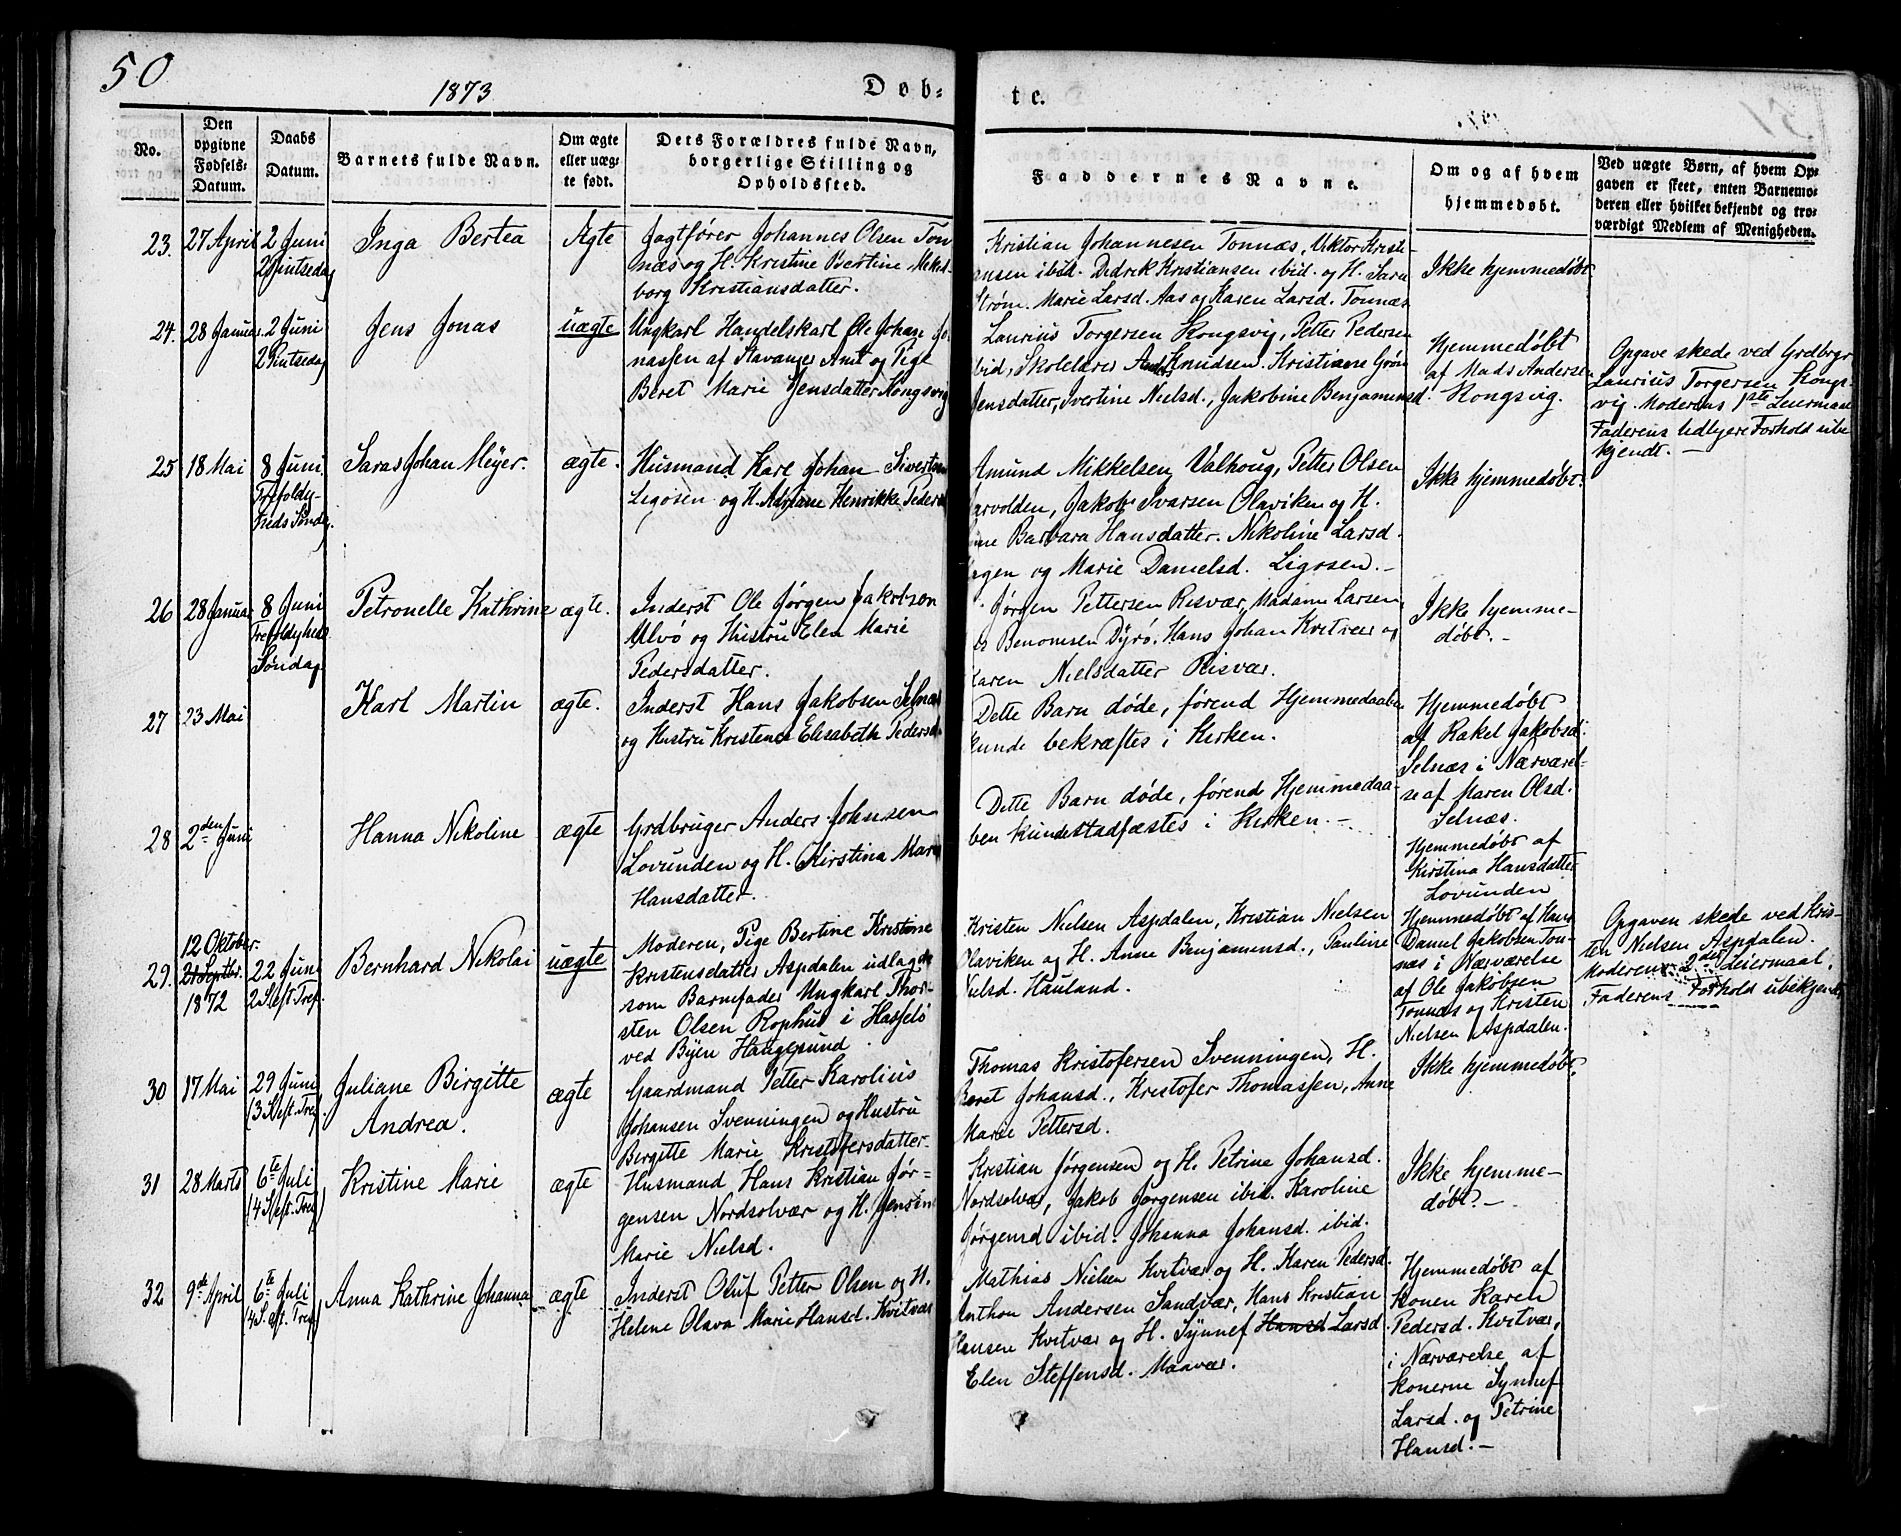 50
1873
Døb-
te.
No.
Den opgivne Fødsels-Datum.
Daabs Datum.
Barnets fulde Navn.
Om ægte eller uæg-te født.
Dets Forældres fulde Navn, borgerlige Stilling og Opholdssted.
Faddernes Navne.
Om og af hvem hjemmedøbt.
Ved uægte Børn, af hvem Op-gaven er skeet, enten Barnemo-deren eller hvilket bekjendt og tro-værdigt Medlem af Menigheden.
23. 27 April 2 Juni
2 Pintsedag
Inga Bertea
Ægte
Jagtfører Johannes Olsen Ton
næs og H. Kristine Bertine
borg Kristiansdatter.
Kristian Johannesen Tonnæs, Viktor Kristi-
ansen ibid. Didrik Kristiansen ibid. og H. Sara
Strøm. Marie Larsd. Aas og Karen Larsd. Tonnæs
Ikke hjemmedøbt
24. 28 Januar 2 Juni
2 Pintsedag
Jens Jonas
uægte
Ungkarl Handelskarl Ole Johan Jo-
nassen af Stavanger Amt og Pige
Beret Marie Jensdatter Kongsvig
Laurius Torgersen Kongsvig, Petter Pedersen
ibid, Skolelærer Knudsen. Kristiane Grøn
Jensdatter, Ivertine Nielsd., Jakobine Benjaminsd.
Hjemmedøbt
af Mads Andersen
Kongsvig.
Opgave skede ved Grdbrgr
Laurius Torgersen Kongs-
vig. Moderens 1ste Leiermaal
Faderens Forhold ube
kjendt. —
25 18 Mai 8 Juni
Trefoldig-
heds Søndag.
Saras Johan Meyer.
ægte.
Husmand Karl Johan Sivertsen
Ligosen og H. Adriane Henrikke Peders
Amund Mikkelsen Valhoug, Petter Olsen
arvolden, Jakob Ivarsen Olaviken og H.
ine Barbara Hansdatter. Nikoline Larsd.
agen og Marie Danielsd. Ligosen. —
Ikke hjemmedøbt.
26 28 Januar 8 Juni
Trefoldigheds
Søndag
Petronelle Kathrine
ægte.
Inderst Ole Jørgen Jakobsen
Ulvø og Hustru Elen Marie
Pedersdatter.
Jørgen Pettersen Risvær, Madam Larsen,
Benonisen Dyrø, Hans Johan Kvitvær og
Karen Nielsdatter Risvær.
Ikke hjemme-
døbt. —
27 23 Mai
Karl Martin
ægte.
Inderst Hans Jakobsen Selnæs
og Hustru Kristence Elisabeth Pedersd.
Dette Barn døde, førend Hjemmedaaben
kunde bekræftes i Kirken.
Hjemmedøbt
af Rakel Jakobsd.
Selnæs i Nærværel-
se af Maren Olsd.
Selnæs.
28 2den Juni
Hanna Nikoline
ægte
Grdbruger Anders Johnsen
Lovunden og H. Kirstina Marie
Hansdatter.
Dette Barn døde, førend Hjemmedaa-
ben kunde stadfæstes i Kirken. —
Hjemmedøbt af
Kirstina Hansdatter
Lovunden
29. 12 Oktober.
21 Septbr.
1872
22 Juni
2 S. eft. Tref.
Bernhard Nikolai
uægte
Moderen, Pige Bertine Kristine
Kristensdatter Aspdalen udlagde
som Barnefader Ungkarl Thor-
sten Olsen Rophus i Hasselø
ved Byen Haugesund.
Kristen Nielsen Aspdalen, Kristian Nielsen
Olaviken og H. Anne Benjaminsd., Pauline
Nielsd. Hauland.
Hjemmedøbt af Hans
Daniel Jakobsen Ton-
næs i Nærværelse
af Ole Jakobsen
Tonnæs og Kristen
Nielsen Aspdalen.
Opgaven skede ved Kris-
ten Nielsen Aspdalen.
Moderens 2det Leiermaal.
Faderens Forhold ubekjendt.
30 17 Mai 29 Juni
(3 S. eft. Tref.)
Juliane Birgitte
Andrea.
ægte
Gaardmand Petter Karolius
Johansen Svenningen og Hustru
Birgitte Marie Kristofersdatter.
Thomas Kristofersen Svenningen, H.
Beret Johansd., Kristofer Thomassen, Anne
Marie Pettersd.
Ikke hjemmedøbt.
31 28 Marts 6te Juli
(4 S. eft. Tref.)
Kristine Marie
ægte
Husmand Hans Kristian Jør-
gensen Nordsolvær og H. Jensine
Marie Nielsd.
Kristian Jørgensen og H. Petrine Johansd.
Nordsolvær, Jakob Jørgensen ibid. Karoline
Jørgensd ibid. Johanna Johansd. ibid.
Ikke hjemme-
døbt. —
32 9de April 6te Juli
4 S. eft. Tref.)
Anna Kathrine Johanna
ægte
Inderst Oluf Petter Olsen og H.
Helene Olava Marie Hansd. Kvitvær
Mathias Nielsen Kvitvær og H. Karen Pedersd.
Anthon Andersen Sandvær, Hans Kristian
Hansen Kvitvær og H. Synnef Hansd Larsd.
Elen Steffensd. Maavær.
Hjemmedøbt af
Konen Karen
Pedersd. Kvitvær,
i Nærværelse af
Konerne Synnef
Larsd. og Petrine
Hansd. —